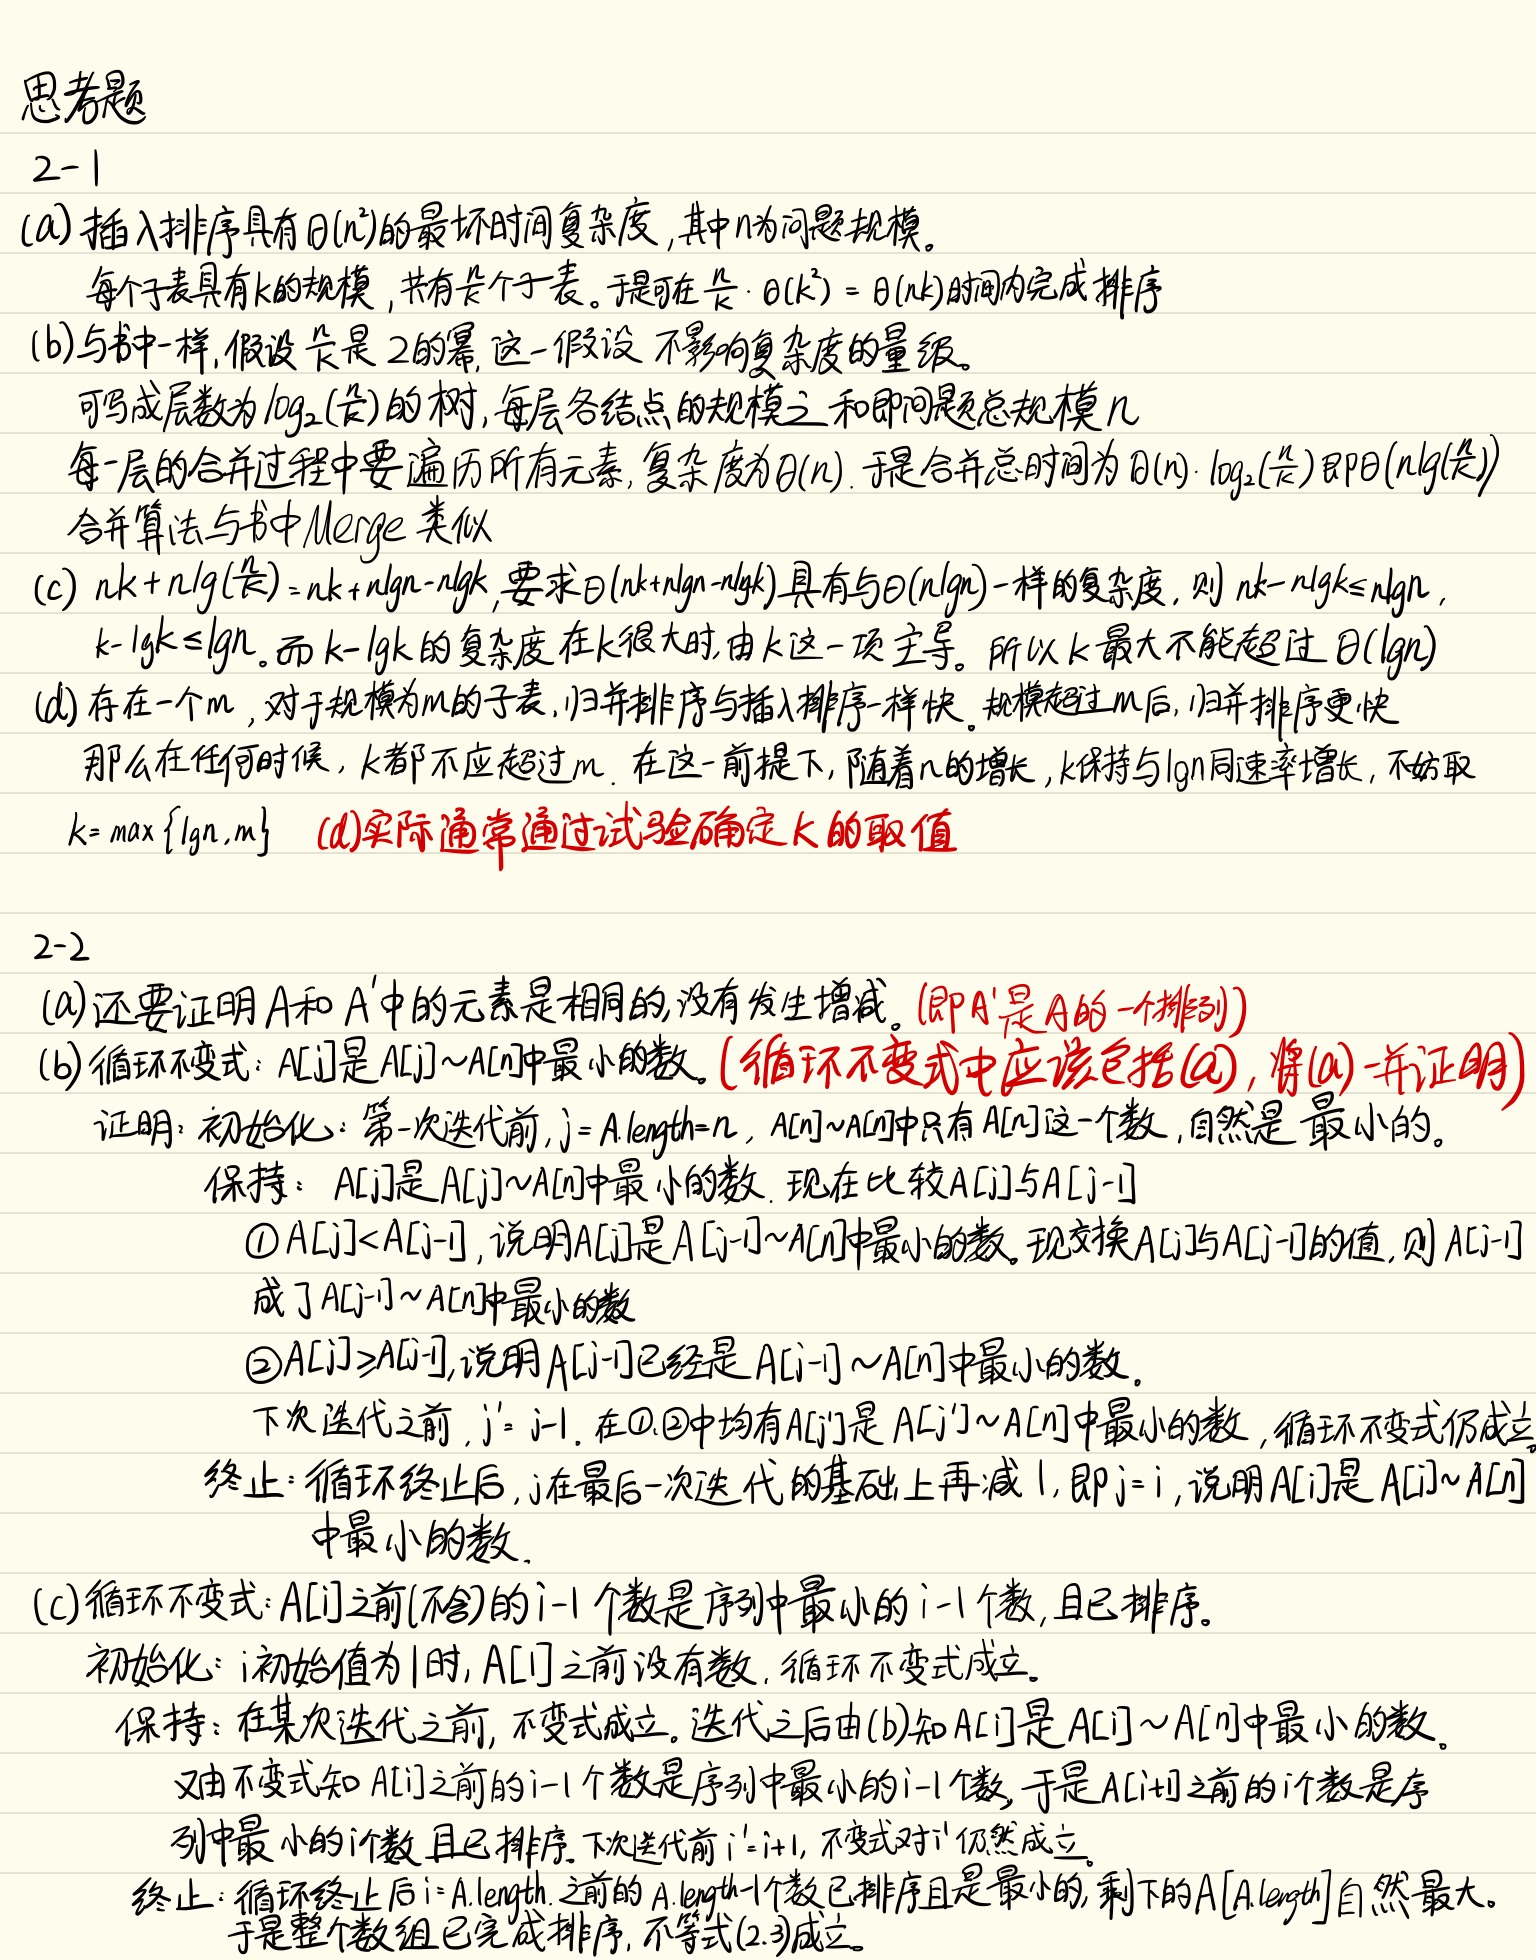 思考题
2-1
(a) 插入排序具有Θ(n²)的最坏时间复杂度,其中n为问题规模。
每个子表具有k的规模,共有n/k个子表。于是可在 n/k · Θ(k²) = Θ(nk)时间内完成排序
(b) 与书中一样,假设n/k是2的幂,这一假设 不影响复杂度的量级。
可写成层数为log₂(n/k)的树,每层各结点的规模之和即问题总规模n
每一层的合并过程中要遍历所有元素,复杂度为Θ(n).于是合并总时间为Θ(n)·log₂(n/k)即Θ(nlg(n/k))
合并算法与书中Merge类似
(c) nk+nlg(n/k)=nk+nlgn-nlgk,要求Θ(nk+nlgn-nlgk)具有与Θ(nlgn)一样的复杂度,则 nk-nlgk≤nlgn,
k-lgk≤lgn。而k-lgk的复杂度在k很大时,由k这一项主导。所以k最大不能超过Θ(lgn)
(d) 存在一个m,对于规模为m的子表,归并排序与插入排序一样快。规模超过m后,归并排序更快
那么在任何时候,k都不应超过m.在这一前提下,随着n的增长,k保持与lgn同速率增长,不妨取
k=max{lgn,m} (d)实际通常通过试验确定k的取值
2-2
(a) 还要证明A和A'中的元素是相同的,没有发生增减。(即A'是A的一个排列)
(b) 循环不变式:A[j]是A[j]~A[n]中最小的数。(循环不变式中应该包括(a),将(a)一并证明)
证明:初始化:第一次迭代前,j=A.length=n,A[n]~A[n]中只有A[n]这一个数,自然是最小的。
保持:A[j]是A[j]~A[n]中最小的数.现在比较A[j]与A[j-1]
①A[j]<A[j-1],说明A[j]是A[j-1]~A[n]中最小的数。现交换A[j]与A[j-1]的值,则A[j-1]
成了A[j-1]~A[n]中最小的数
②A[j]≥A[j-1],说明A[j-1]已经是A[j-1]~A[n]中最小的数。
下次迭代之前,j'=j-1.在①、②中均有A[j']是A[j']~A[n]中最小的数,循环不变式仍成立。
终止:循环终止后,j在最后一次迭代的基础上再减1,即j=i,说明A[i]是A[i]~A[n]
中最小的数.
(c) 循环不变式:A[i]之前(不含)的i-1个数是序列中最小的i-1个数,且已排序。
初始化:i初始值为1时,A[1]之前没有数,循环不变式成立。
保持:在某次迭代之前,不变式成立。迭代之后由(b)知A[i]是A[i]~A[n]中最小的数。
又由不变式知A[i]之前的i-1个数是序列中最小的i-1个数,于是A[i+1]之前的i个数是序
列中最小的i个数且已排序.下次迭代前i'=i+1,不变式对i'仍然成立。
终止:循环终止后i=A.length.之前的A.length-1个数已排序且是最小的,剩下的A[A.length]自然最大。
于是整个数组已完成排序,不等式(2.3)成立。